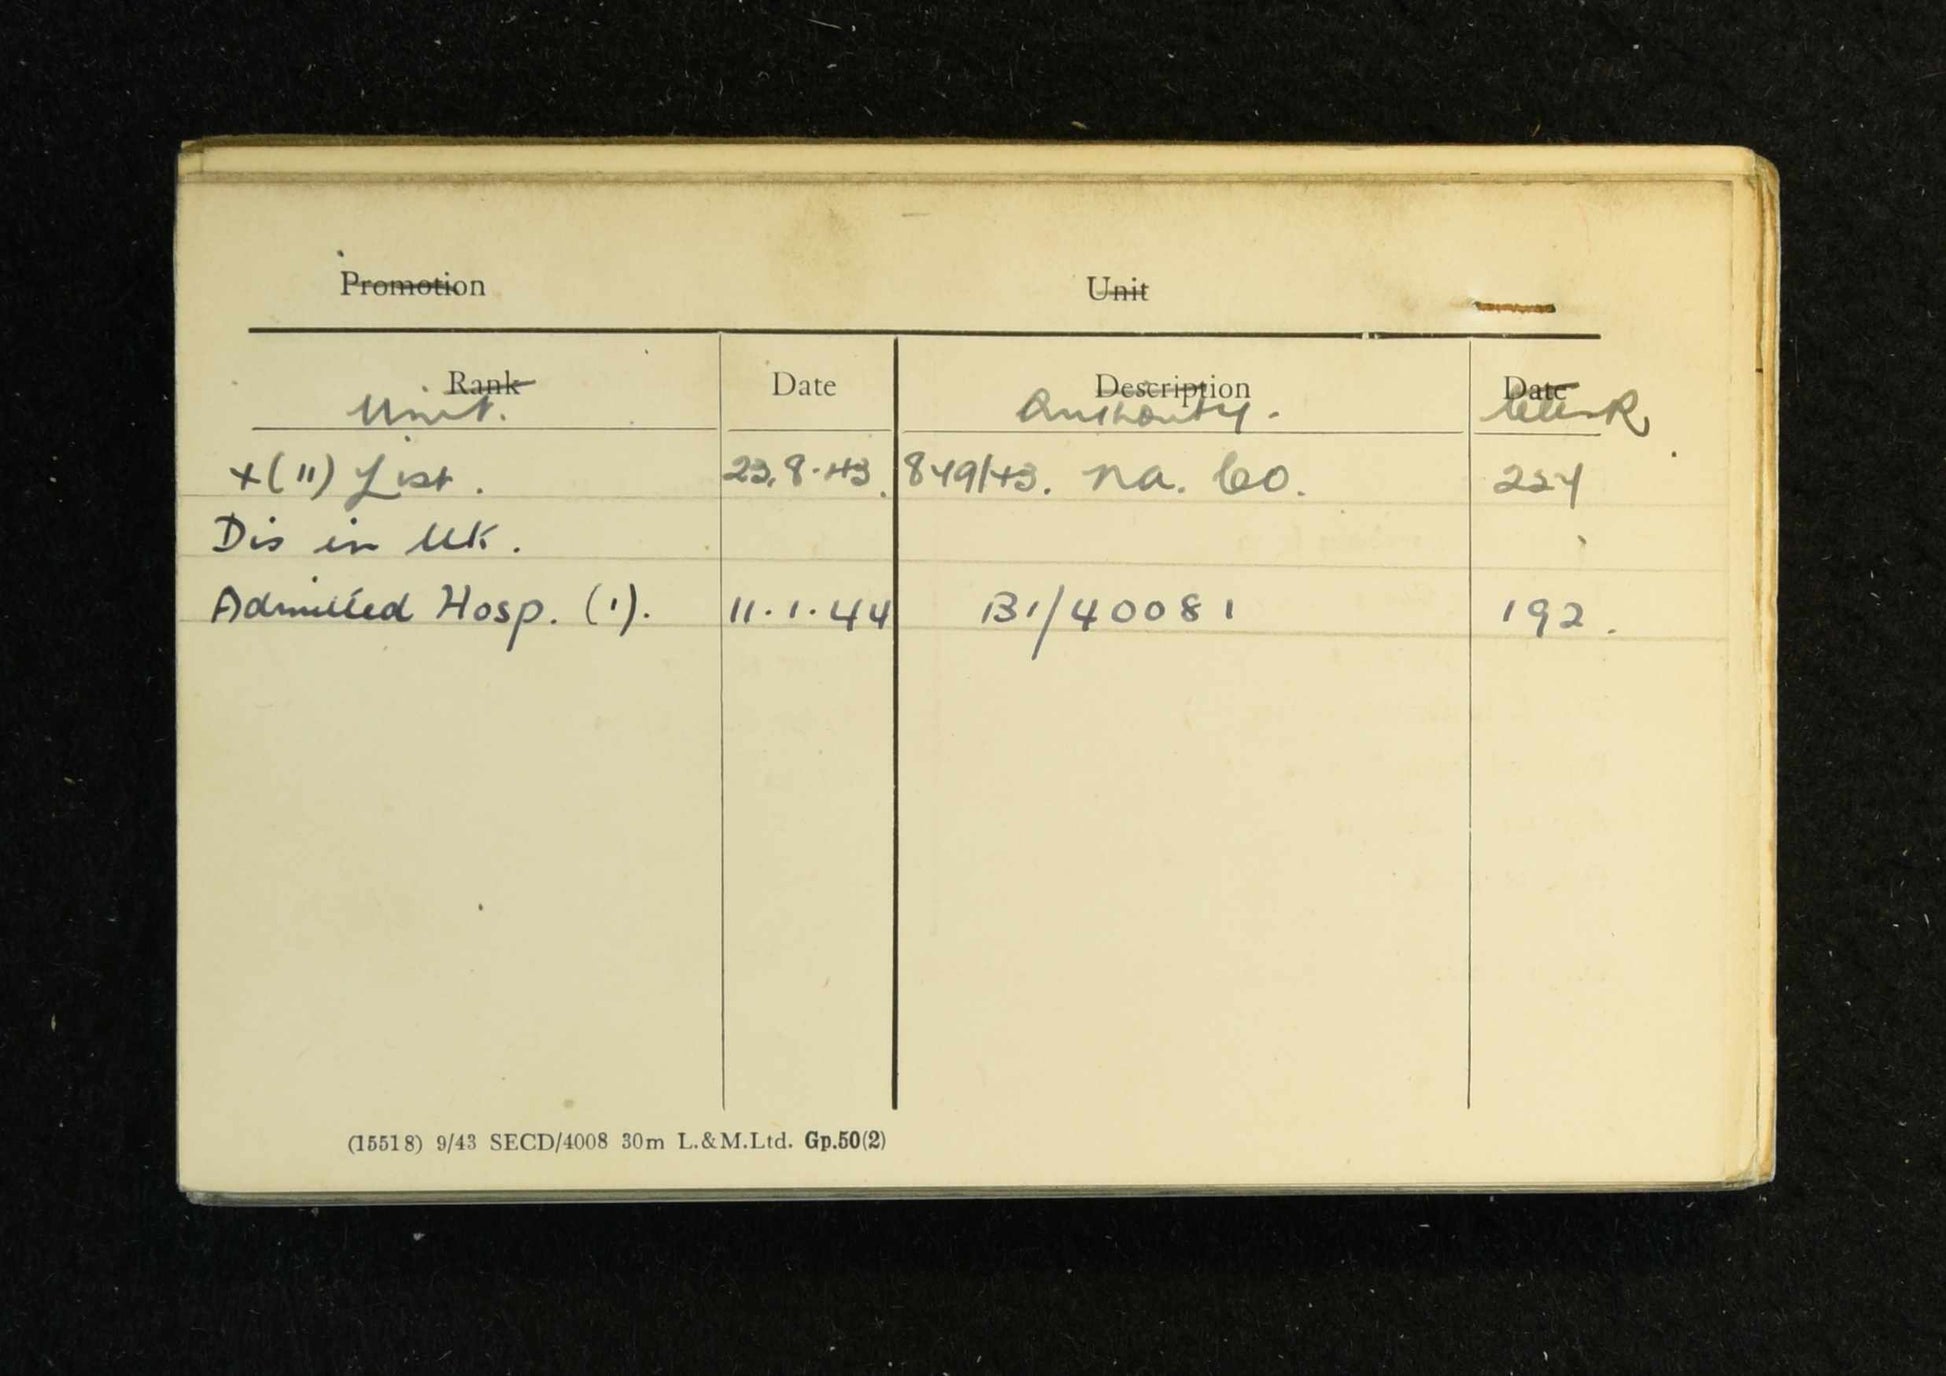 Promotion Unit
Rank Date Description Date
Unit. Authority. Clerk
x(ii) List. 23.8.43. 849/43. NA. Co. 224
Dis in UK.
Admitted Hosp. (1). 11.1.44 B1/40081 192.
(15518) 9/43 SECD/4008 30m L.&M.Ltd. Gp.50(2)